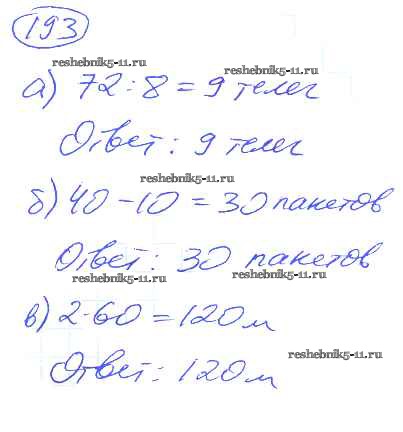 193
reshebnik5-11.ru
reshebnik5-11.ru
а) 72 : 8 = 9 телег
Ответ: 9 телег
reshebnik5-11.ru
б) 40 - 10 = 30 пакетов
Ответ: 30 пакетов
reshebnik5-11.ru
reshebnik5-11.ru
в) 2·60 = 120 м
reshebnik5-11.ru
Ответ: 120 м